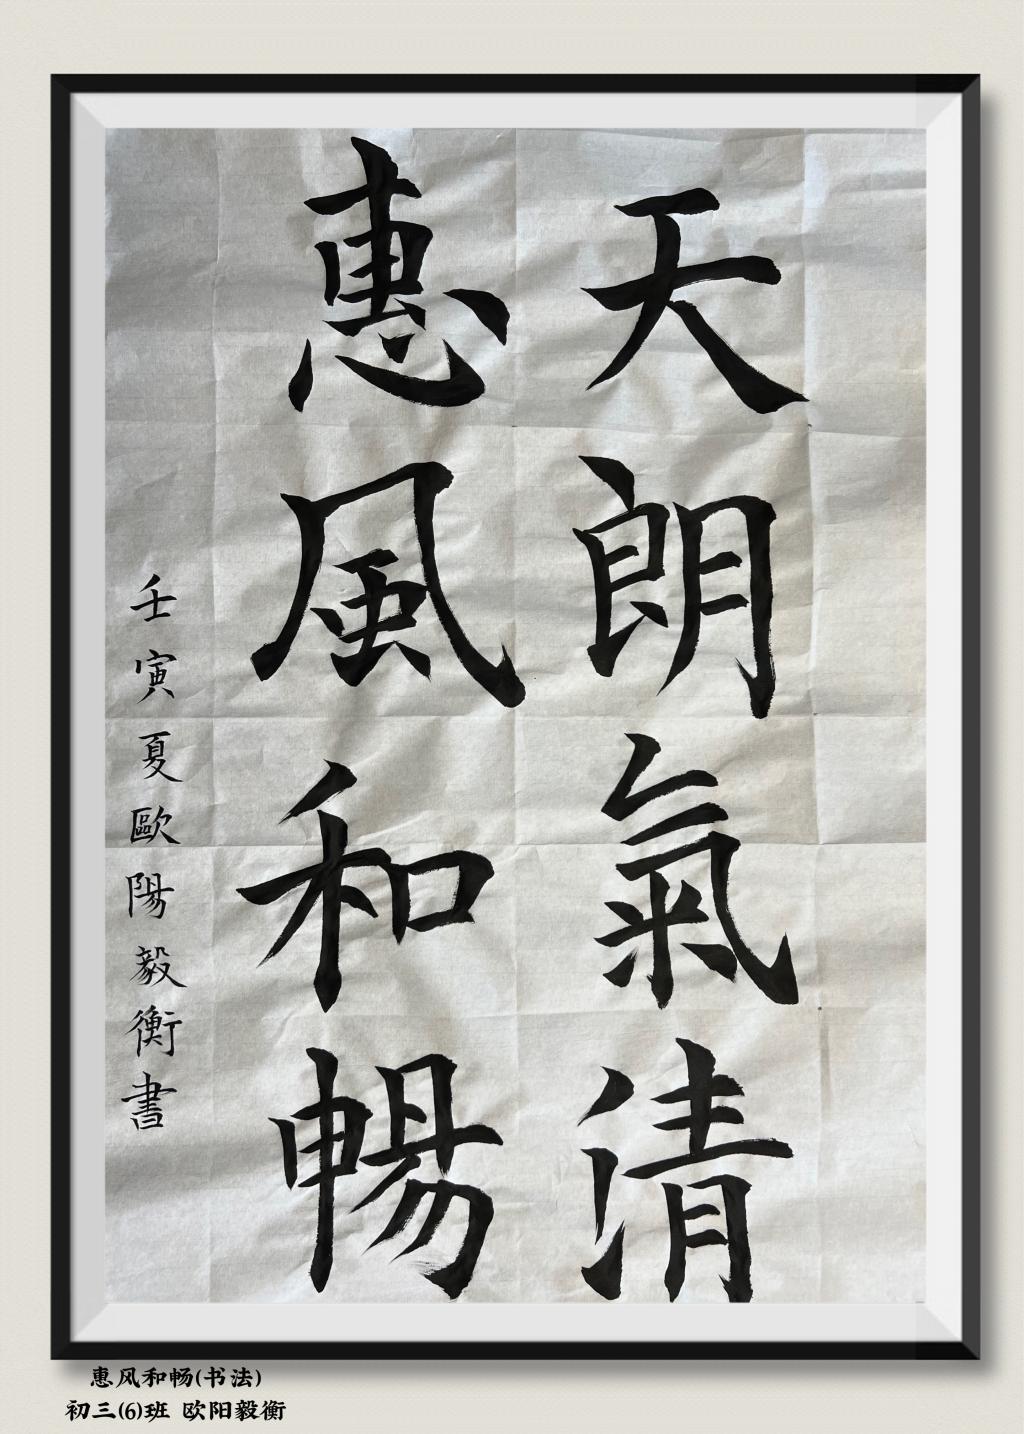 天朗氣清
惠風和暢
壬寅夏歐陽毅衡書
惠风和畅(书法)
初三(6)班 欧阳毅衡